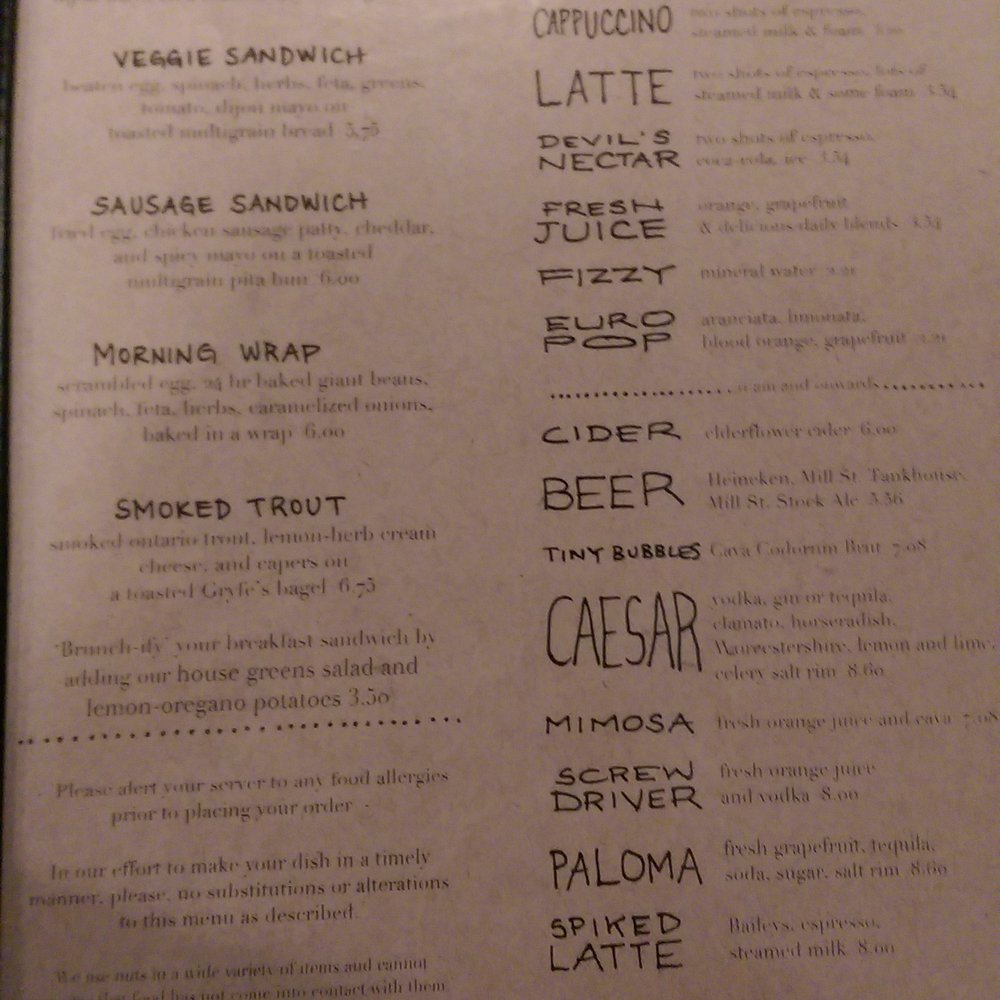 VEGGIE SANDWICH
beaten egg, spinach, herbs, feta, greens,
tomato, dijon mayo on
toasted multigrain bread 5.75
SAUSAGE SANDWICH
fried egg, chicken sausage patty, cheddar,
and spicy mayo on a toasted
multigrain pita bun 6.00
MORNING WRAP
scrambled egg, 24 hr baked giant beans,
spinach, feta, herbs, caramelized onions,
baked in a wrap 6.00
SMOKED TROUT
smoked ontario trout, lemon-herb cream
cheese, and capers on
a toasted Gryfe's bagel 6.75
'Brunch-ify' your breakfast sandwich by
adding our house greens salad and
lemon-oregano potatoes 3.50
Please alert your server to any food allergies
prior to placing your order
In our effort to make your dish in a timely
manner, please, no substitutions or alterations
to this menu as described.
We use nuts in a wide variety of items and cannot
food has not come into contact with them
CAPPUCCINO two shots of espresso,
steamed milk & foam
LATTE two shots of espresso, lots of
steamed milk & some foam 3.54
DEVIL'S NECTAR two shots of espresso,
coca-cola, ice 3.54
FRESH JUICE orange, grapefruit
& delicious daily blends 3.54
FIZZY mineral water 2.21
EURO POP aranciata, limonata,
blood orange, grapefruit 2.21
11 am and onwards
CIDER elderflower cider 6.00
BEER Heineken, Mill St. Tankhouse,
Mill St. Stock Ale 5.56
TINY BUBBLES Cava Codorniu Brut 7.08
CAESAR vodka, gin or tequila,
clamato, horseradish,
Worcestershire, lemon and lime,
celery salt rim 8.60
MIMOSA fresh orange juice and cava 7.08
SCREW DRIVER fresh orange juice
and vodka 8.00
PALOMA fresh grapefruit, tequila,
soda, sugar, salt rim 8.60
SPIKED LATTE Baileys, espresso,
steamed milk 8.00